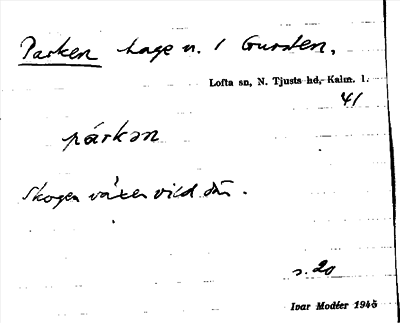 Parken hage n. / Gursten.
Lofta sn, N. Tjusts hd, Kalm. l.
41
párkən
Skogen växer vild där.
s. 20
Ivar Modéer 1945